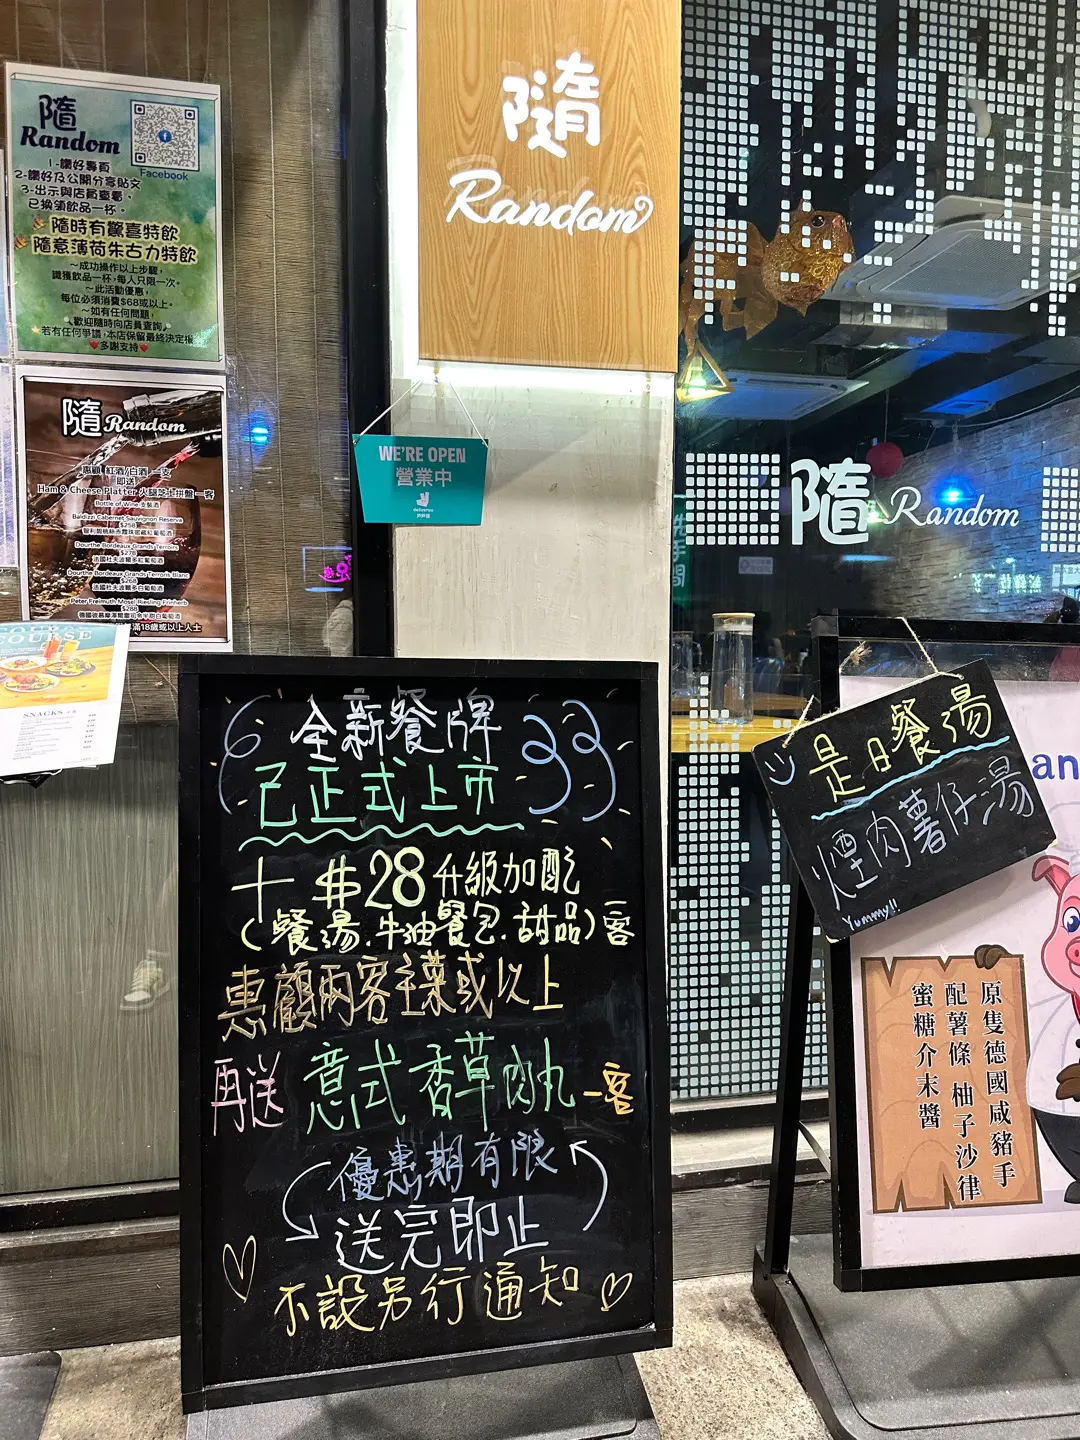 隨
Random
Facebook
1-讚好專頁
2-讚好及公開分享貼文
3-出示與店員查看,
已換領飲品一杯。
隨時有驚喜特飲
隨意薄荷朱古力特飲
～成功操作以上步驟,
識獲飲品一杯,每人只限一次。
～此活動優惠,
每位必須消費$68或以上。
～如有任何問題,
歡迎隨時向店員查詢。
若有任何爭議,本店保留最終決定權
多謝支持
隨 Random
惠顧 紅酒/白酒 一支
即送
Ham & Cheese Platter 火腿芝士拼盤 一客
Bottle of Wine 支裝酒
Baldizzi Cabernet Sauvignon Reserva
$258
Dourthe Bordeaux Grands Terroirs
$278
法國杜夫波爾多紅葡萄酒
Dourthe Bordeaux Grands Terroirs Blanc
$268
法國杜夫波爾多白葡萄酒
Peter Freimuth Mosel Riesling Feinherb
$288
滿18歲或以上人士
COURSE
SNACKS
隨
Random
WE'RE OPEN
營業中
deliveroo
戶戶送
隨 Random
洗手間
全新餐牌
已正式上市
十 $28 升級加配
(餐湯.牛油餐包.甜品)客
惠顧兩客主菜或以上
再送 意式香草肉丸 一客
優惠期有限
送完即止
不設另行通知
是日餐湯
煙肉薯仔湯
Yummy!!
an
原隻德國咸豬手
配薯條 柚子沙律
蜜糖介末醬